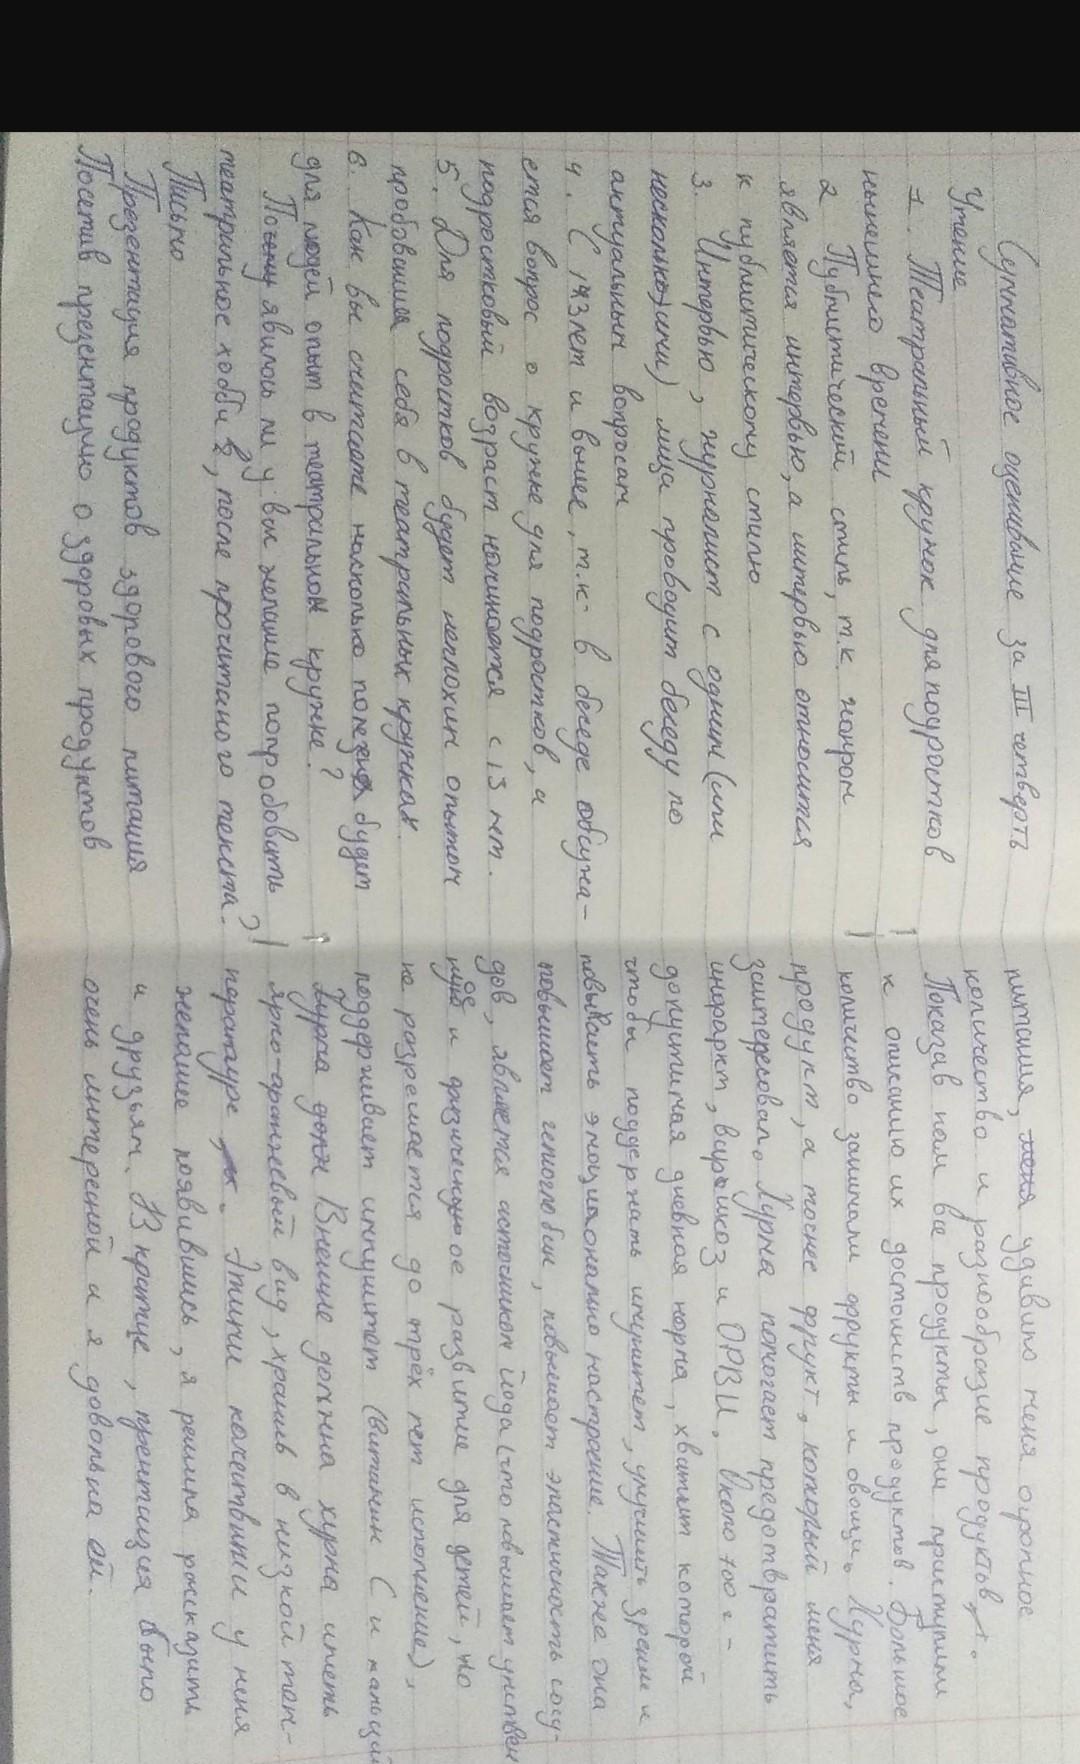 Суммативное оценивание за III четверть
Чтение
1. Театральный кружок для подростков
нынешнего времени
2 Публистический стиль, т.к. жанром
является интервью, а интервью относится
к публистическому стилю
3. Интервью, журналист с одним (или
несколькими) лица проводит беседу по
актуальным вопросам
4. С 13 лет и выше, т.к. в беседе обсужда-
ется вопрос о кружке для подростков, а
подростковый возраст начинается с 13 лет.
5. Для подростков будет неплохим опытом
пробовавшие себя в театральных кружках.
6. Как вы считаете насколько полезен будет
для людей опыт в театральном кружке?
Почему явилось ли у вас желание попробовать
театральное хобби, после прочитаного текста?
Письмо
Презентация продуктов здорового питания
Посетив презентацию о здоровых продуктов
питания, меня удивило меня огромное
количество и разнообразие продуктов.
Показав нам все продукты, они приступили
к описанию их достоинств продуктов. Большое
количество занимали фрукты и овощи. Хурма,
продукт, а точнее фрукт, который меня
заитересовал. Хурма помогает предотвратить
инфаркт, и ОРВИ. Около 100 г -
допустимая дневная норма, хватит которой
чтобы поддержать иммунитет, улучшить зрение и
эмоционально настроение. Также она
повышает гемоглобин, повышает эластичность сосу-
дов, является источником йода (что повышает умствен
ное и физическое развитие для детей, но
не разрешается до трёх лет исполнение),
поддерживает иммунитет (витамин С и кальций
Хурма долж Внешне должна хурма иметь
ярко-оранжевый вид, хранив в низкой тем-
пературе. Этими качествами у меня
желание появившись, я решила рассказать
и друзьям. В кратце, презентация было
очень интересной и я довольна ей.